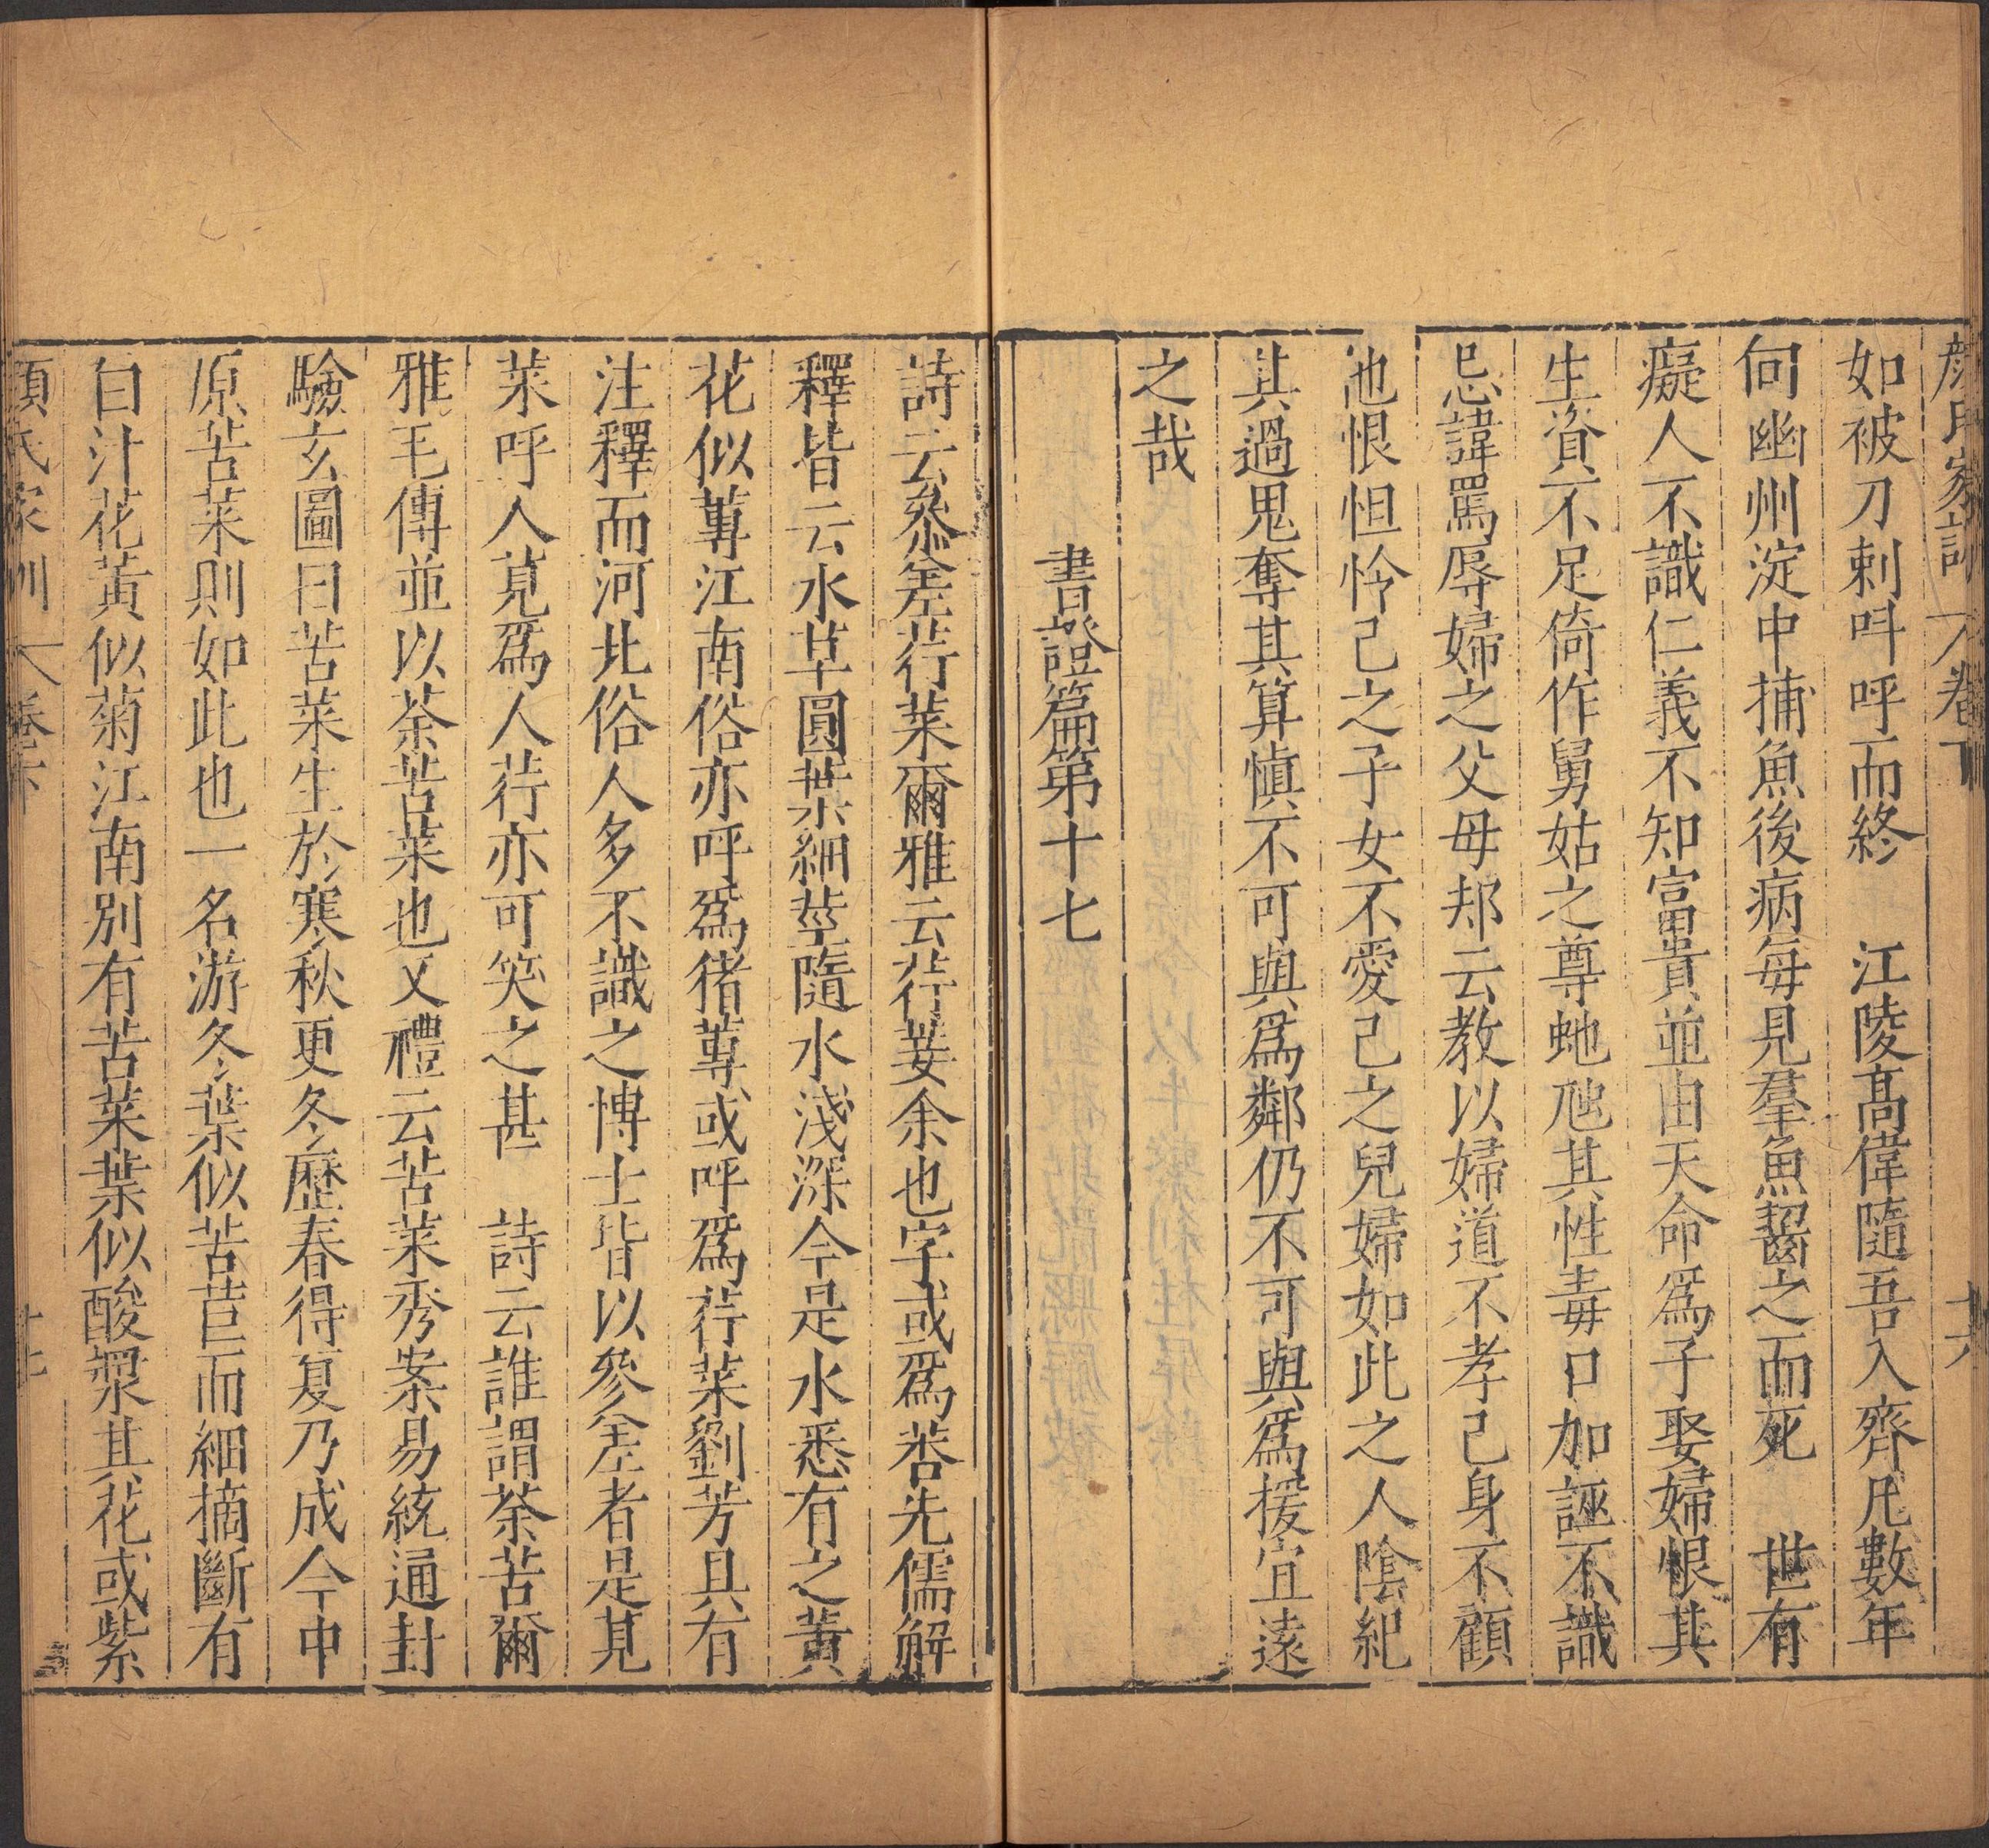 顏氏家訓 卷下 十六
如被刀刺呌呼而終 江陵高偉隨吾入齊凡數年
向幽州淀中捕魚後病每見羣魚齧之而死 世有
癡人不識仁義不知富貴並由天命爲子娶婦恨其
生資不足倚作舅姑之尊虵虺其性毒口加誣不識
忌諱罵辱婦之父母却云教以婦道不孝己身不顧
他恨但怜己之子女不愛己之兒婦如此之人陰紀
其過鬼奪其算愼不可與爲鄰仍不可與爲援宜遠
之哉
書證篇第十七
詩云叅差荇菜爾雅云荇菨余也字或爲莕先儒解
釋皆云水草圓葉細莖隨水淺深今是水悉有之黃
花似蓴江南俗亦呼爲猪蓴或呼爲荇菜劉芳具有
注釋而河北俗人多不識之博士皆以參差者是莧
菜呼人莧爲人荇亦可笑之甚 詩云誰謂荼苦爾
雅毛傳並以荼苦菜也又禮云苦菜秀案易統通卦
驗玄圖曰苦菜生於寒秋更冬歷春得夏乃成今中
原苦菜則如此也一名游冬葉似苦苣而細摘斷有
白汁花黃似菊江南別有苦菜葉似酸漿其花或紫
顏氏家訓 卷下 十七